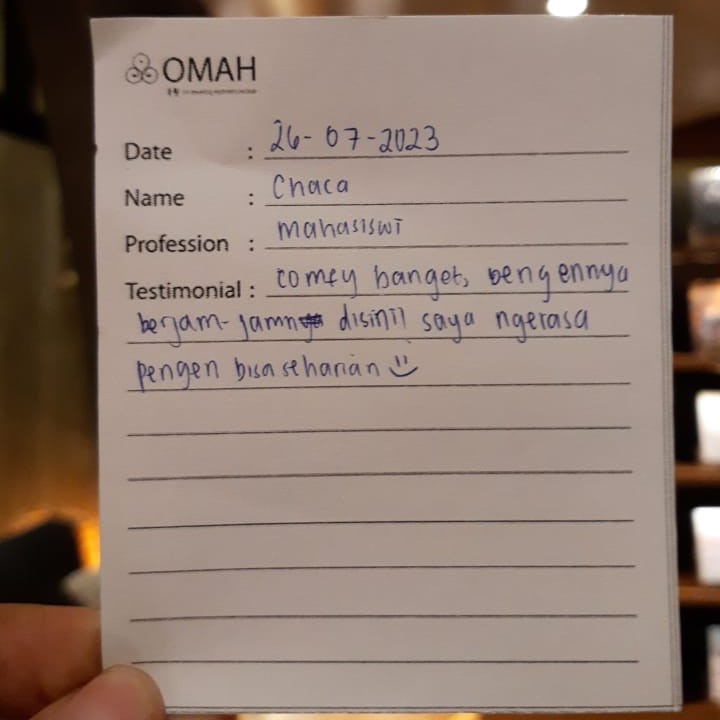 OMAH
Date : 26-07-2023
Name : Chaca
Profession : mahasiswi
Testimonial : comfy banget, pengennya
berjam-jam disini! saya ngerasa
pengen bisa seharian